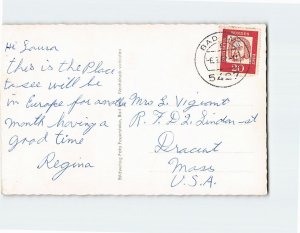 Hi Laura
this is the Place
to see will be
in Europe for another
month having a
good time
Regina
Mrs L. Vigeant
R. F. D 2. Linden st
Dracut
Mass
U.S.A.
BAD
542
20